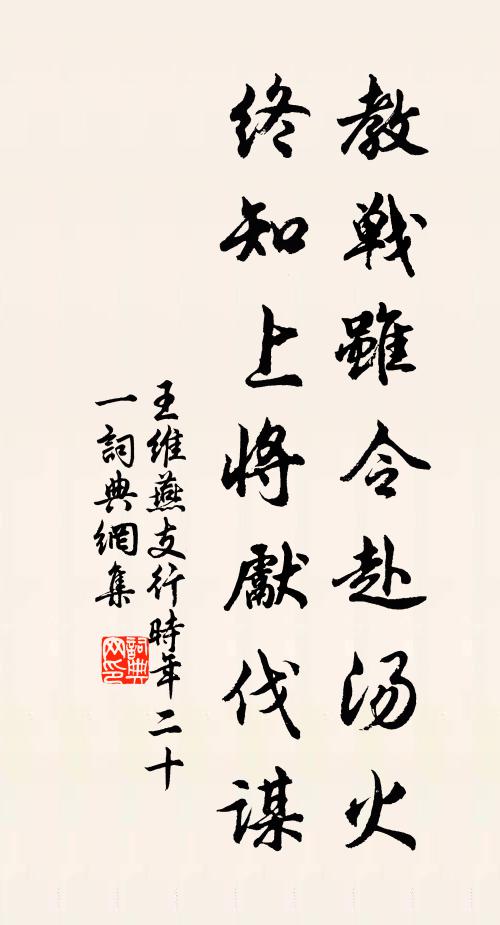 教戰雖令赴湯火
終知上將獻伐謀
王維燕支行時年二十
一詞典網集
詞典网印